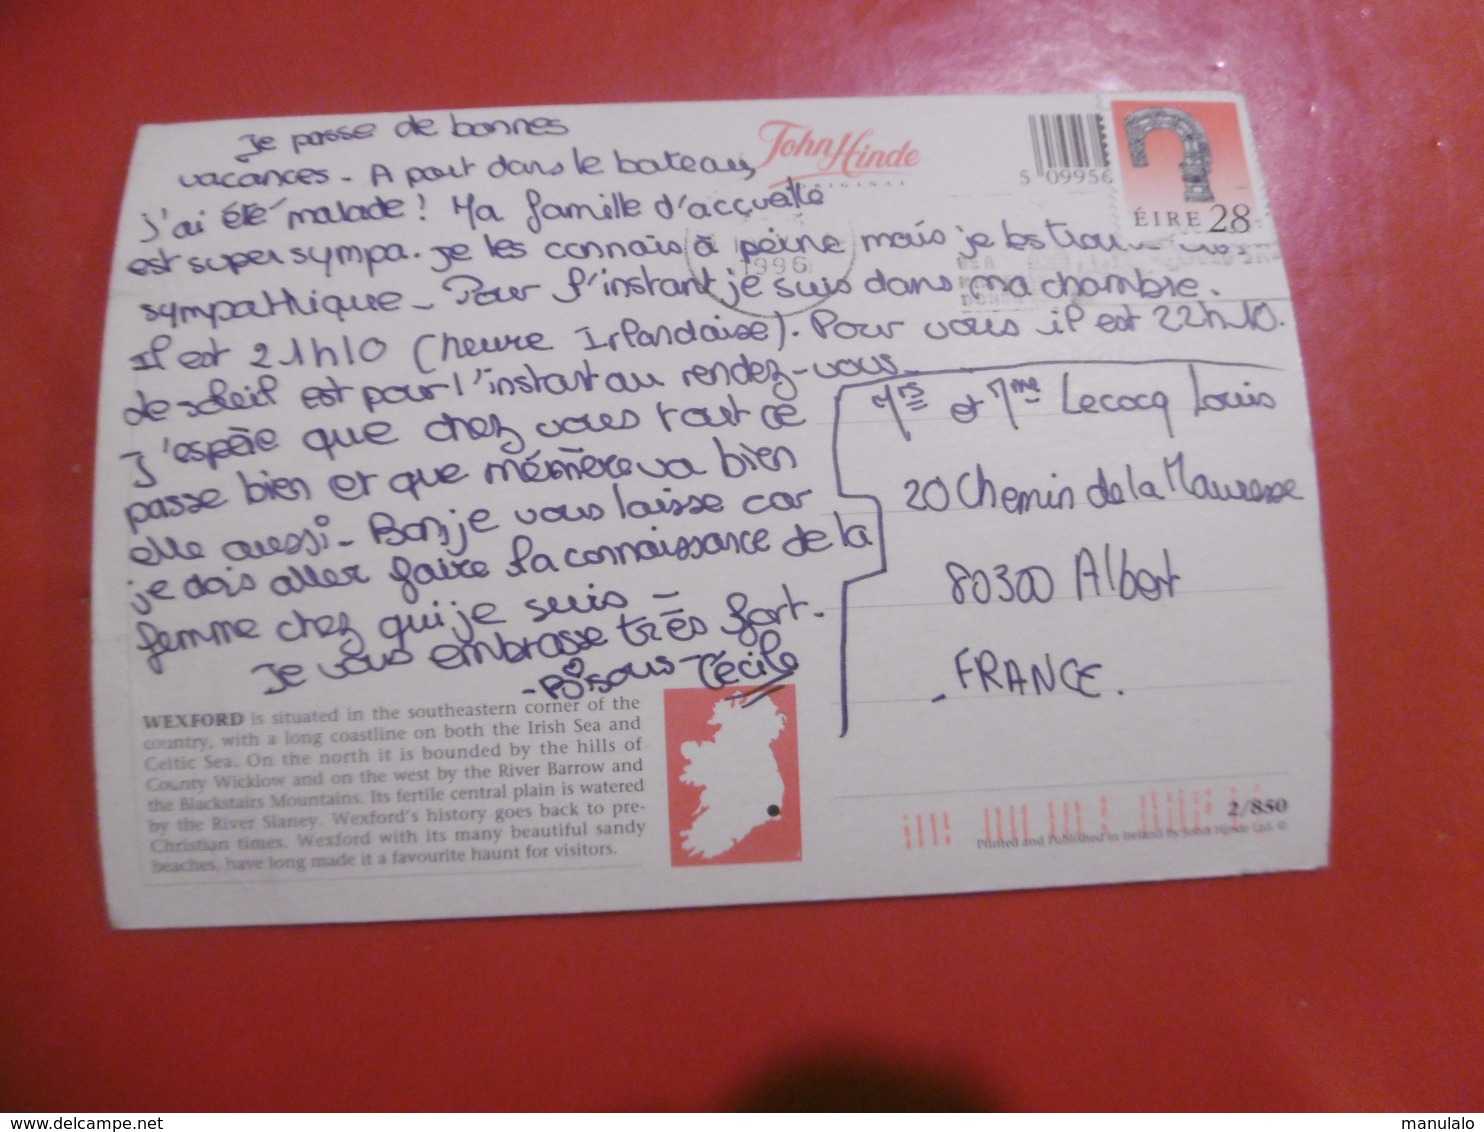 Je passe de bonnes
vacances - A part dans le bateau,
j'ai été malade ! Ma famille d'accueille
est super sympa. Je les connais à peine mais je les trouve
sympathique - Pour l'instant je suis dans ma chambre.
Il est 21h10 (heure Irlandaise). Pour vous il est 22h10.
Le soleil est pour l'instant au rendez-vous
J'espère que chez vous tout ce
passe bien et que mémère va bien
elle aussi - Bon je vous laisse car
je dois aller faire la connaissance de la
femme chez qui je suis -
Je vous embrasse très fort.
- Bisous - Cécile
John Hinde
ORIGINAL
5 09956
ÉIRE 28
1996
Mrs et Mme Lecocq Louis
20 Chemin de la Mauresse
80300 Albert
- FRANCE.
WEXFORD is situated in the southeastern corner of the
country, with a long coastline on both the Irish Sea and
Celtic Sea. On the north it is bounded by the hills of
County Wicklow and on the west by the River Barrow and
the Blackstairs Mountains. Its fertile central plain is watered
by the River Slaney. Wexford's history goes back to pre-
Christian times. Wexford with its many beautiful sandy
beaches, have long made it a favourite haunt for visitors.
2/850
Printed and Published in Ireland by John Hinde Ltd. ©
delcampe.net
manulalo